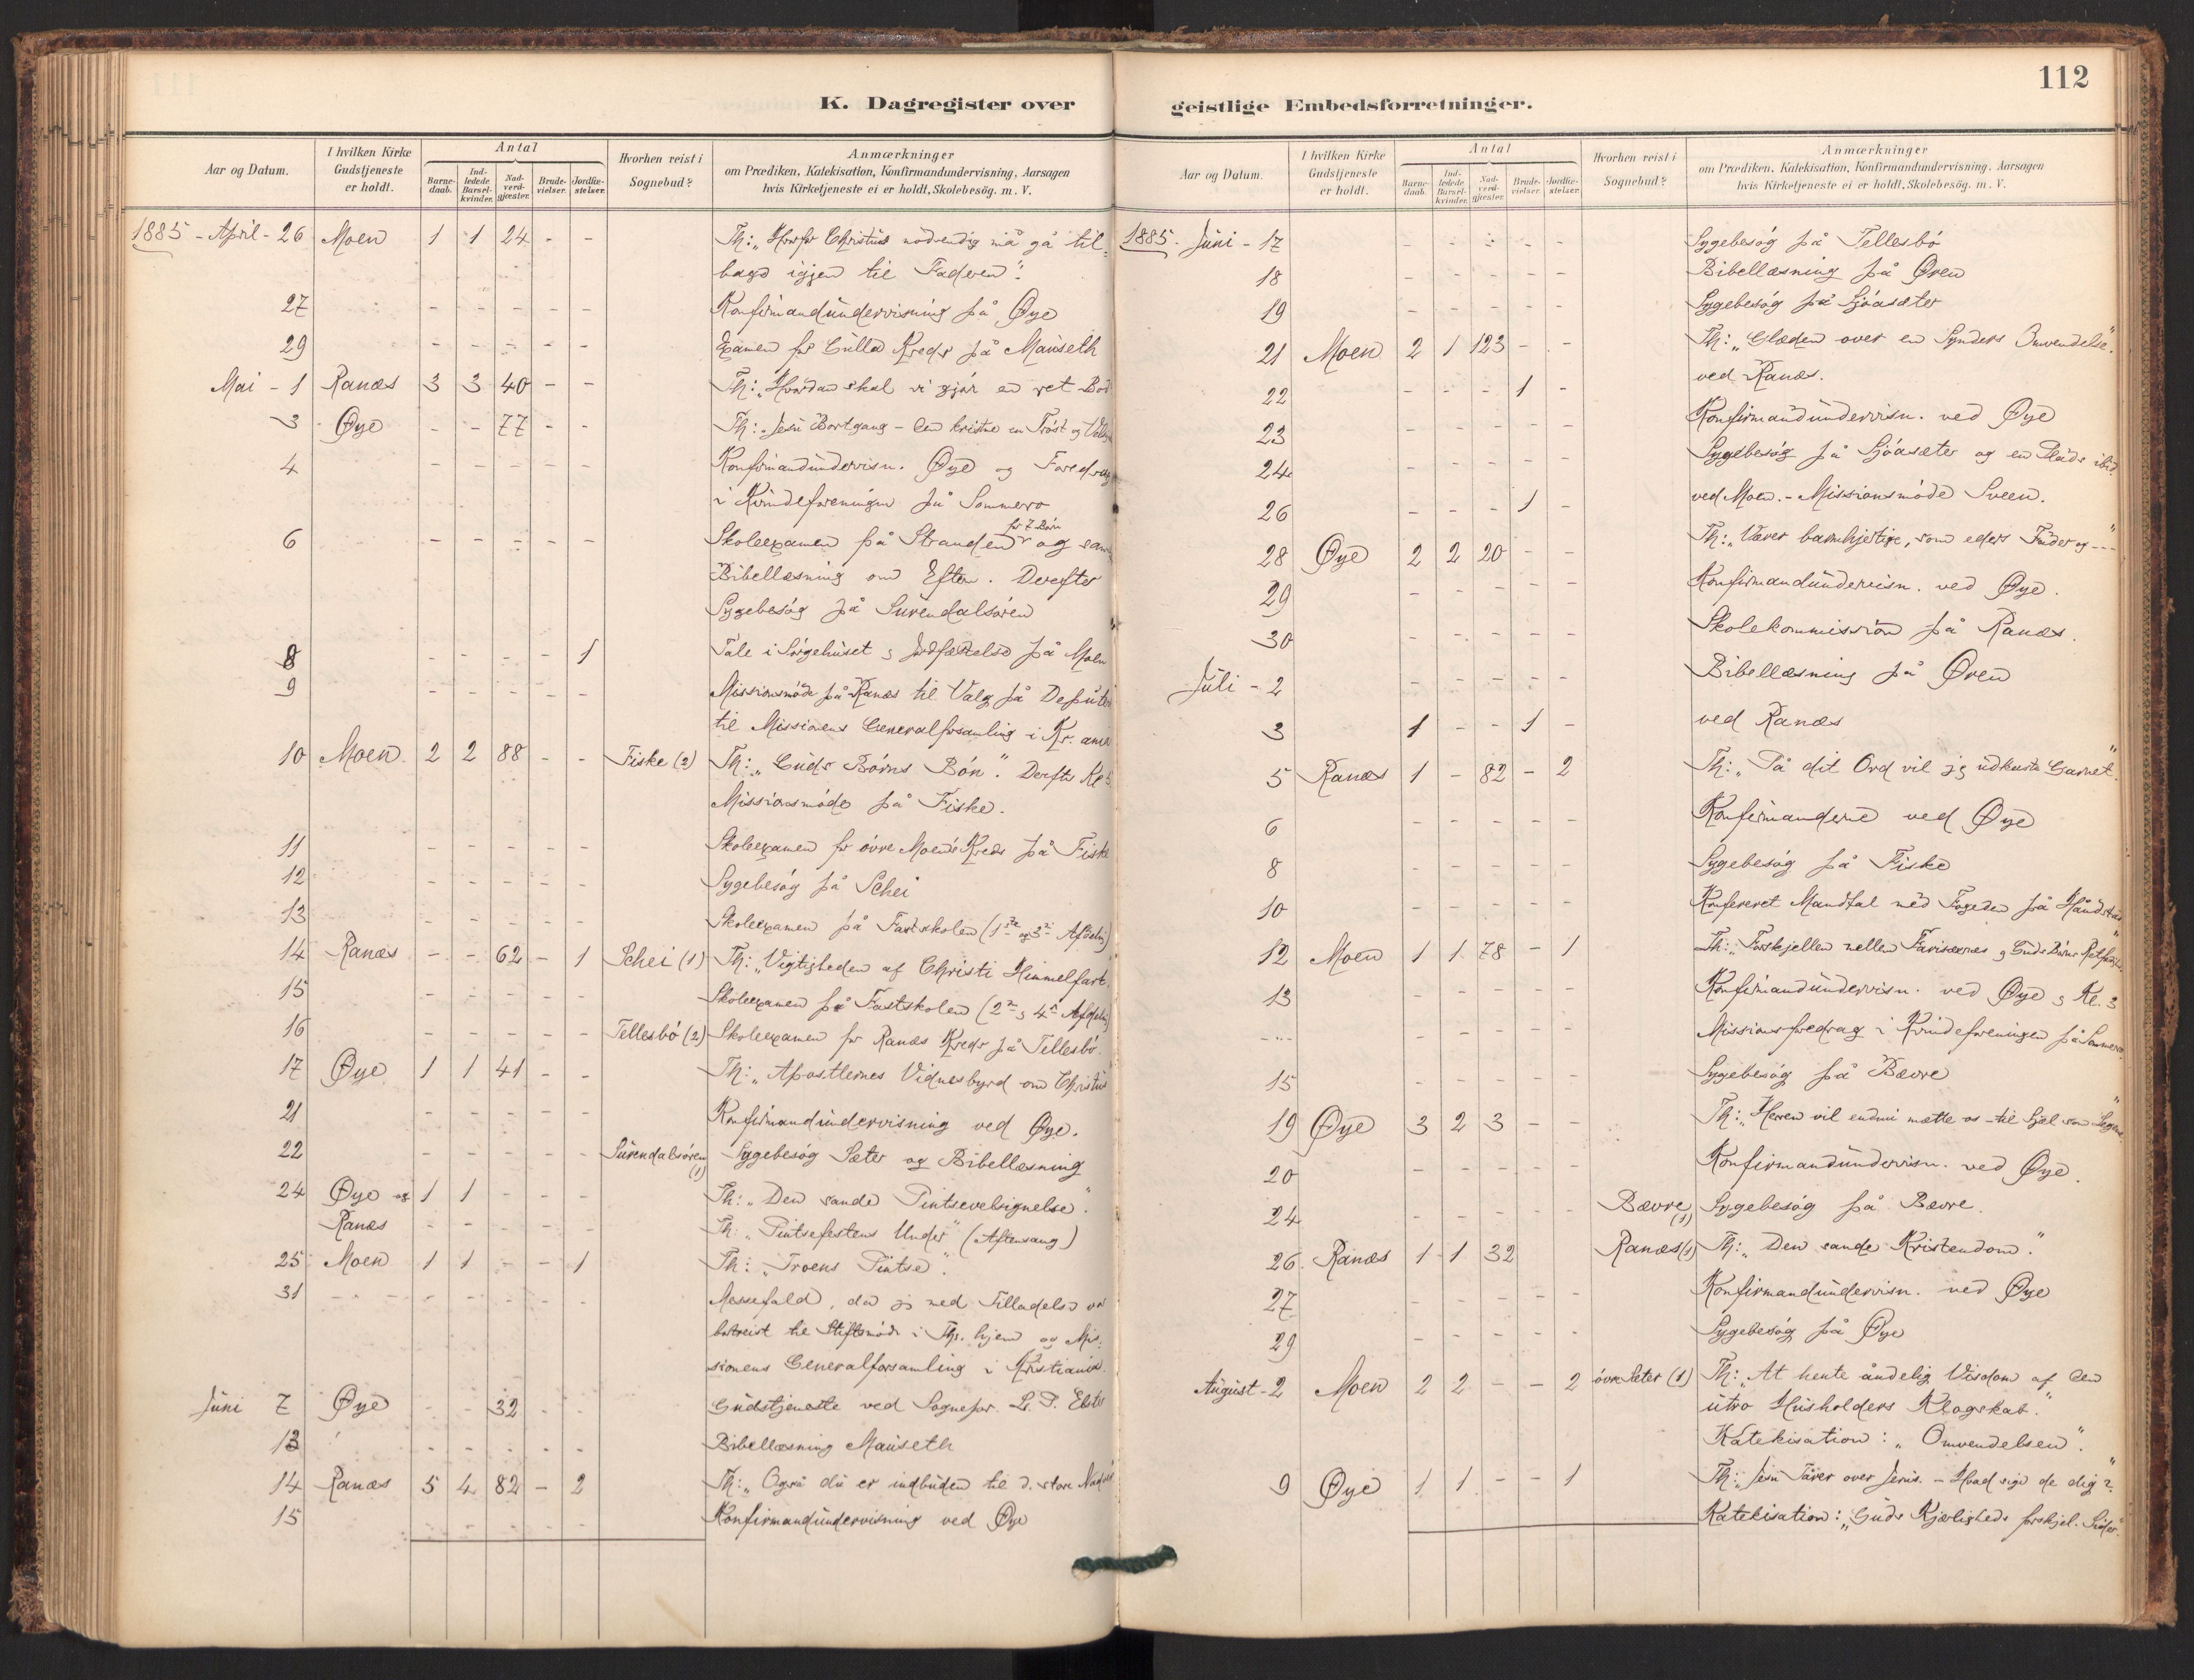 112
K. Dagregister over geistlige Embedsforretninger.
Aar og Datum. I hvilken Kirke Gudstjeneste er holdt. Antal Barnedaab. Indledede Barselkvinder. Nadverdgjæster. Brudevielser. Jordfæstelser. Hvorhen reist i Sognebud? Anmærkninger om Prædiken, Katekisation, Konfirmandundervisning, Aarsagen hvis Kirketjeneste ei er holdt, Skolebesøg. m. V.
1885 - April - 26 Moen 1 1 24 - - Th: „Hvorfor Christus nødvendig må gå til-
bage igjen til Faderen".
27 - - - - - Konfirmandundervisning på Øye
29 - - - - - Examen for Gulla Kreds på Mauseth
Mai - 1 Ranæs 3 3 40 - - Th: „Hvordan skal vi gjør en ret Bod
3 Øye - - 77 - - Th: Jesu Bortgang - den kristne en Trøst og
4 - - - - - Konfirmandundervisn. Øye og Foredrag
i Kvindeforeningen på Sommero
6 - - - - - Skoleexamen på Stranden for 7 Børn og
Bibellæsning om Eftm. Derefter
Sygebesøg på Surendalsøren
8 - - - - 1 Tale i Sørgehuset & Jordfæstelse på Moen
9 - - - - - Missionsmøde på Ranæs til Valg på
til Missionens Generalforsamling i
10 Moen 2 2 88 - - Fiske (2) Th: „Guds Børns Bøn". Derefter Kl 5
Missionsmøde på Fiske.
11 - - - - - Skoleexamen for øvre Moens Kreds på Fiske
12 - - - - - Sygebesøg på Schei
13 - - - - - Skoleexamen på Fastskolen (1ste og 3die Afdeln)
14 Ranæs - - 62 - 1 Schei (1) Th: „Vigtigheden af Christi Himmelfart"
15 - - - - - Skoleexamen på Fastskolen (2n & 4n Afdeln)
16 - - - - - Tellesbø (2) Skoleexamen for Ranæs Kreds på Tellesbø.
17 Øye 1 1 41 - - Th: „Apostlernes Vidnesbyrd om Christus"
21 - - - - - Konfirmandundervisning ved Øye.
22 - - - - - Surendalsøren (1) Sygebesøg Sæter og Bibellæsning
24 Øye og 1 1 - - - Th: „Den sande Pintsevelsignelse".
Ranæs - - - - - Th: „Pintsefestens Under" (Aftensang)
25 Moen 1 1 - - 1 Th: „Troens Pintse".
31 - - - - - Messefald, da jeg med Tilladelse var
bortreist til Stiftsmøde i Thr.hjem og Mis-
sionens Generalforsamling i Kristiania.
Juni 7 Øye - - 32 - - Gudstjeneste ved Sognepr.
13 - - - - - Bibellæsning Mauseth
14 Ranæs 5 4 82 - 2 Th: „Også du er indbuden til d. store
15 - - - - - Konfirmandundervisning ved Øye
Aar og Datum. I hvilken Kirke Gudstjeneste er holdt. Antal Barnedaab. Indledede Barselkvinder. Nadverdgjæster. Brudevielser. Jordfæstelser. Hvorhen reist i Sognebud? Anmærkninger om Prædiken, Katekisation, Konfirmandundervisning, Aarsagen hvis Kirketjeneste ei er holdt, Skolebesøg. m. V.
1885. Juni - 17 - - - - - Sygebesøg på Tellesbø
18 - - - - - Bibellæsning på Øren
19 - - - - - Sygebesøg på Sjøasæter
21 Moen 2 1 123 - - Th: „Glæden over en Synders Omvendelse".
22 - - - 1 - ved Ranæs.
23 - - - - - Konfirmandundervisn. ved Øye
24 - - - - - Sygebesøg på Sjøasæter og en Plads ibid.
26 - - - 1 - ved Moen. - Missionsmøde Sveen.
28 Øye 2 2 20 - - Th: „Værer barmhjertige, som eders Fader og ---"
29 - - - - - Konfirmandundervisn. ved Øye.
30 - - - - - Skolekommission på Ranæs.
Juli - 2 - - - - - Bibellæsning på Øren
3 1 - - 1 - ved Ranæs
5 Ranæs 1 - 82 - 2 Th: „På dit Ord vil jeg udkaste Garnet".
6 - - - - - Konfirmanderne ved Øye
8 - - - - - Sygebesøg på Fiske
10 - - - - - Konfereret Mandtal med Fogeden på
12 Moen 1 1 78 - 1 Th: „Forskjellen mellem Farisæernes & Guds Børns
13 - - - - - Konfirmandundervisn. ved Øye & Kl. 3
- - - - - - - - Missionsforedrag i Kvindeforeningen på Sommero.
15 - - - - - Sygebesøg på Bævre
19 Øye 3 2 3 - - Th: „Herren vil endnu mætte os - til Sjæl som
20 - - - - - Konfirmandundervisn. ved Øye.
24 - - - - - Bævre (1) Sygebesøg på Bævre.
26. Ranæs 1 1 32 Ranæs (1) Th: „Den sande Kristendom".
27 - - - - - Konfirmandundervisn. ved Øye
29 - - - - - Sygebesøg på Øye
August - 2 Moen 2 2 - - 2 øvre Sæter (1) Th: „At hente åndelig Visdom af den
utro Husholders Klogskab."
Katekisation: „Omvendelsen".
9 Øye 1 1 - - 1 Th: „Jesu Tårer over Jerus. - Hvad sige de dig?"
Katekisation: „Guds Kjærligheds forskjel. Sider".